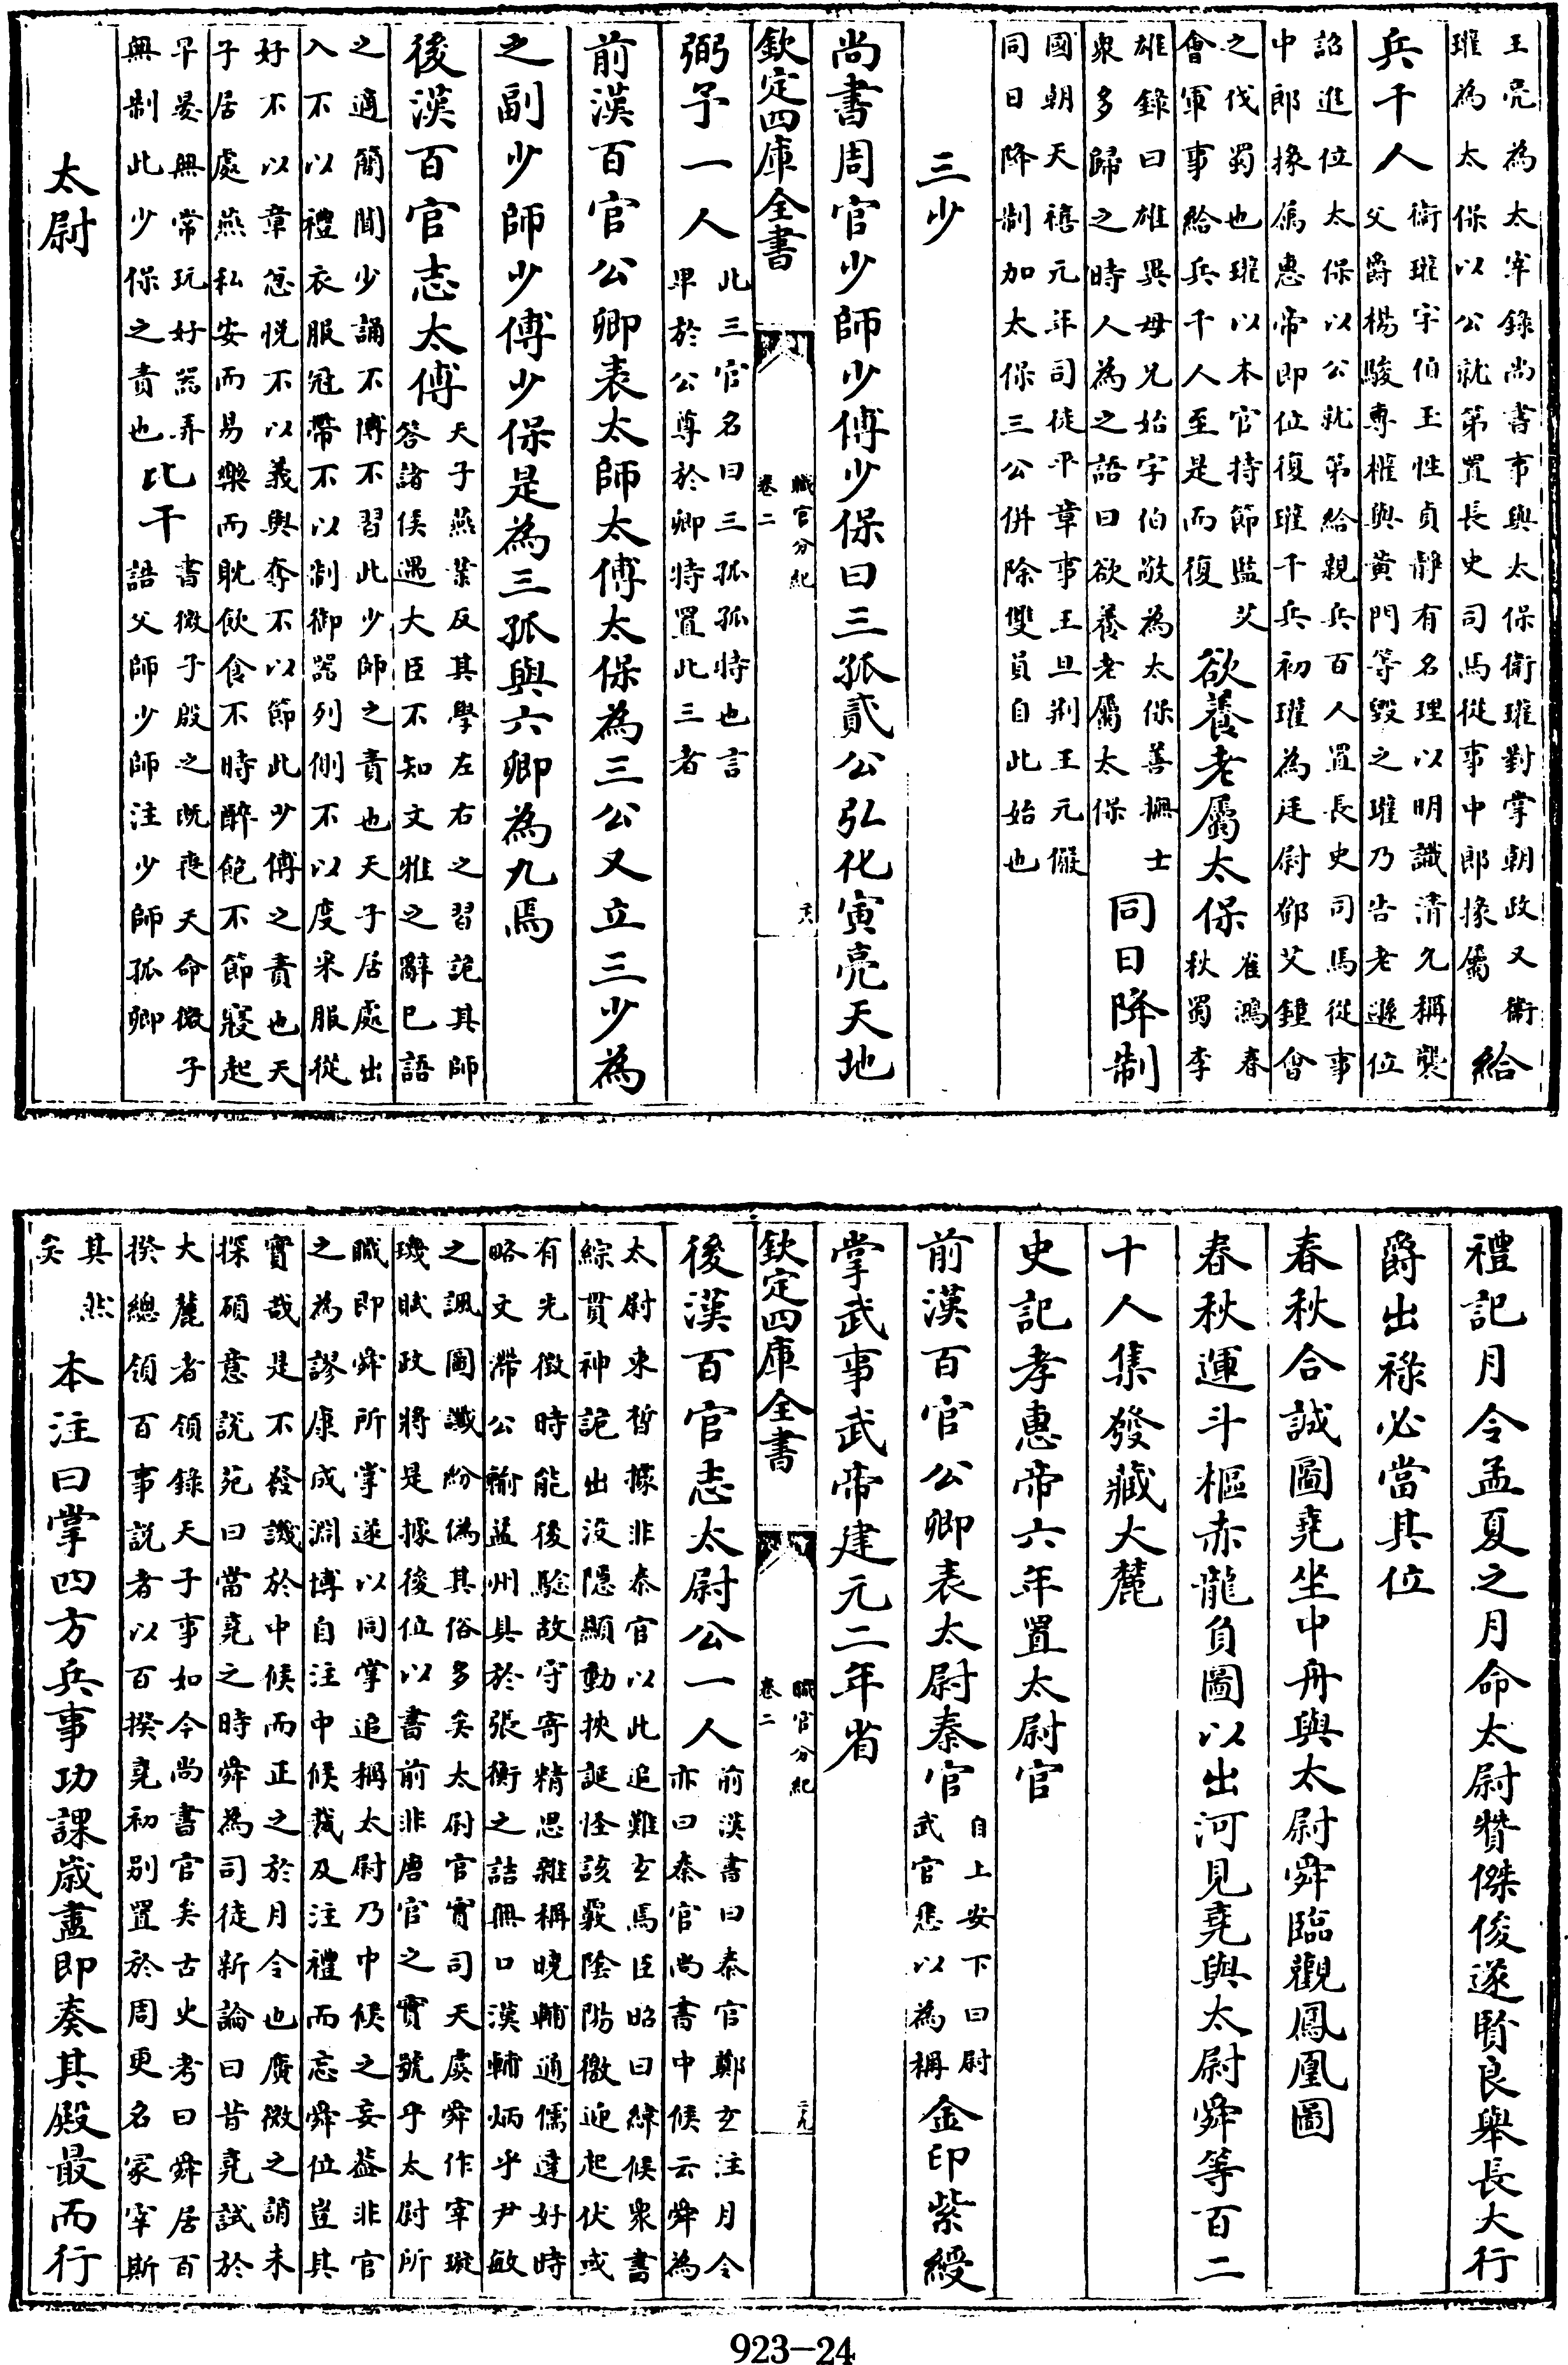 王亮為太宰錄尚書事與太保衛瓘對掌朝政又衛
瓘為太保以公就第置長史司馬從事中郎掾屬
給
兵千人
衛瓘字伯玉性貞靜有名理以明識清允稱襲
父爵楊駿專權與黃門等毀之瓘乃告老遜位
詔進位太保以公就第給親兵百人置長史司馬從事
中郎掾屬惠帝即位復瓘千兵初瓘為廷尉鄧艾鍾會
之伐蜀也瓘以本官持節監艾
會軍事給兵千人至是而復
欲養老屬太保
崔鴻春
秋蜀李
雄錄曰雄異母兄始字伯敬為太保善撫士
衆多歸之時人為之語曰欲養老屬太保
同日降制
國朝天禧元年司徒平章事王旦荆王元儼
同日降制加太保三公併除雙員自此始也
三少
尚書周官少師少傅少保曰三孤貳公弘化寅亮天地
欽定四庫全書
職官分紀
卷二
弼予一人
此三官名曰三孤孤特也言
卑於公尊於卿特置此三者
前漢百官公卿表太師太傅太保為三公又立三少為
之副少師少傅少保是為三孤與六卿為九焉
後漢百官志太傅
天子燕業反其學左右之習詭其師
答諸侯遇大臣不知文雅之辭已語
之適簡聞少誦不傳不習此少師之責也天子居處出
入不以禮衣服冠帶不以制御器列側不以度采服從
好不以章忿悅不以義與奪不以節此少傅之責也天
子居處燕私安而易樂而耽飲食不時醉飽不節寢起
早晏無常玩好器弄
無制此少保之責也
比干
書微子啟之既喪天命微子
誥父師少師注少師孤卿
太尉
禮記月令孟夏之月命太尉贊傑俊遂賢良舉長大行
爵出祿必當其位
春秋合誠圖堯坐中舟與太尉舜臨觀鳳凰圖
春秋運斗樞赤龍負圖以出河見堯與太尉舜等百二
十人集發藏大麓
史記孝惠帝六年置太尉官
前漢百官公卿表太尉秦官
自上安下曰尉
武官悉以為稱
金印紫綬
掌武事武帝建元二年省
欽定四庫全書
職官分紀
卷二
後漢百官志太尉公一人
前漢書曰秦官鄭玄注月令
亦曰秦官尚書中候云舜為
太尉束晳據非秦官以此追難玄焉臣昭曰緯候衆書
綜貫神詭出沒隱顯動挾誕怪該覈陰陽徼迎起伏或
有先徵時能後驗故守寄精思雜稱曉輔通儒達好時
略文滯公輸益州具於張衡之詰無口漢輔炳乎尹敏
之諷圖讖紛偽其俗多矣太尉官實司天虞舜作宰璇
璣賦政將是據後位以書前非唐官之實號乎太尉所
職即舜所掌遂以同掌追稱太尉乃中候之妄葢非官
之為謬康成淵博自注中候裁及注禮而忘舜位豈其
實哉是不發譏於中候而正之於月令也廣微之誚未
探碩意說苑曰當堯之時舜為司徒新論曰昔堯試於
大麓者領錄天子事如今尚書官矣古史考曰舜居百
揆總領百事說者以百揆堯初別置於周更名冢宰斯
其然
矣
本注曰掌四方兵事功課歲盡即奏其殿最而行
923-24